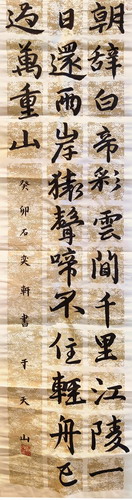 朝辭白帝彩雲間千里江陵一
日還兩岸猿聲啼不住輕舟已
過萬重山
癸卯石奕軒書于天山